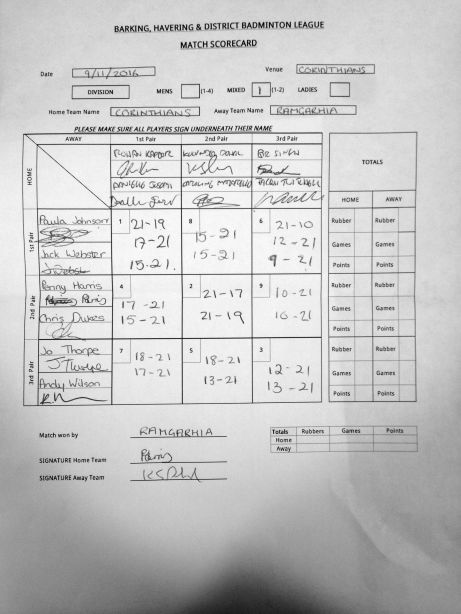 BARKING, HAVERING & DISTRICT BADMINTON LEAGUE
MATCH SCORECARD
Date 9/11/2016 Venue CORINTHIANS
DIVISION MENS (1-4) MIXED 1 (1-2) LADIES
Home Team Name CORINTHIANS Away Team Name RAMGARHIA
PLEASE MAKE SURE ALL PLAYERS SIGN UNDERNEATH THEIR NAME
AWAY 1st Pair 2nd Pair 3rd Pair
HOME
ROHAN KAPOOR
TOTALS
HOME AWAY
1st Pair
Paula Johnson 1 21-19 8 6 21-10 Rubber Rubber
17-21 15-21 12-21 Games Games
Jack Webster 15-21 15-21 9-21 Points Points
J Webster
2nd Pair
Penny Harris 4 2 9 10-21 Rubber Rubber
Penny 17-21 21-17 Games Games
Chris Dukes 15-21 21-19 16-21 Points Points
3rd Pair
Jo Thorpe 7 18-21 5 18-21 3 Rubber Rubber
J Thorpe 17-21 12-21 Games Games
Andy Wilson 13-21 13-21 Points Points
Match won by RAMGARHIA
Totals Rubbers Games Points
Home
Away
SIGNATURE Home Team
SIGNATURE Away Team